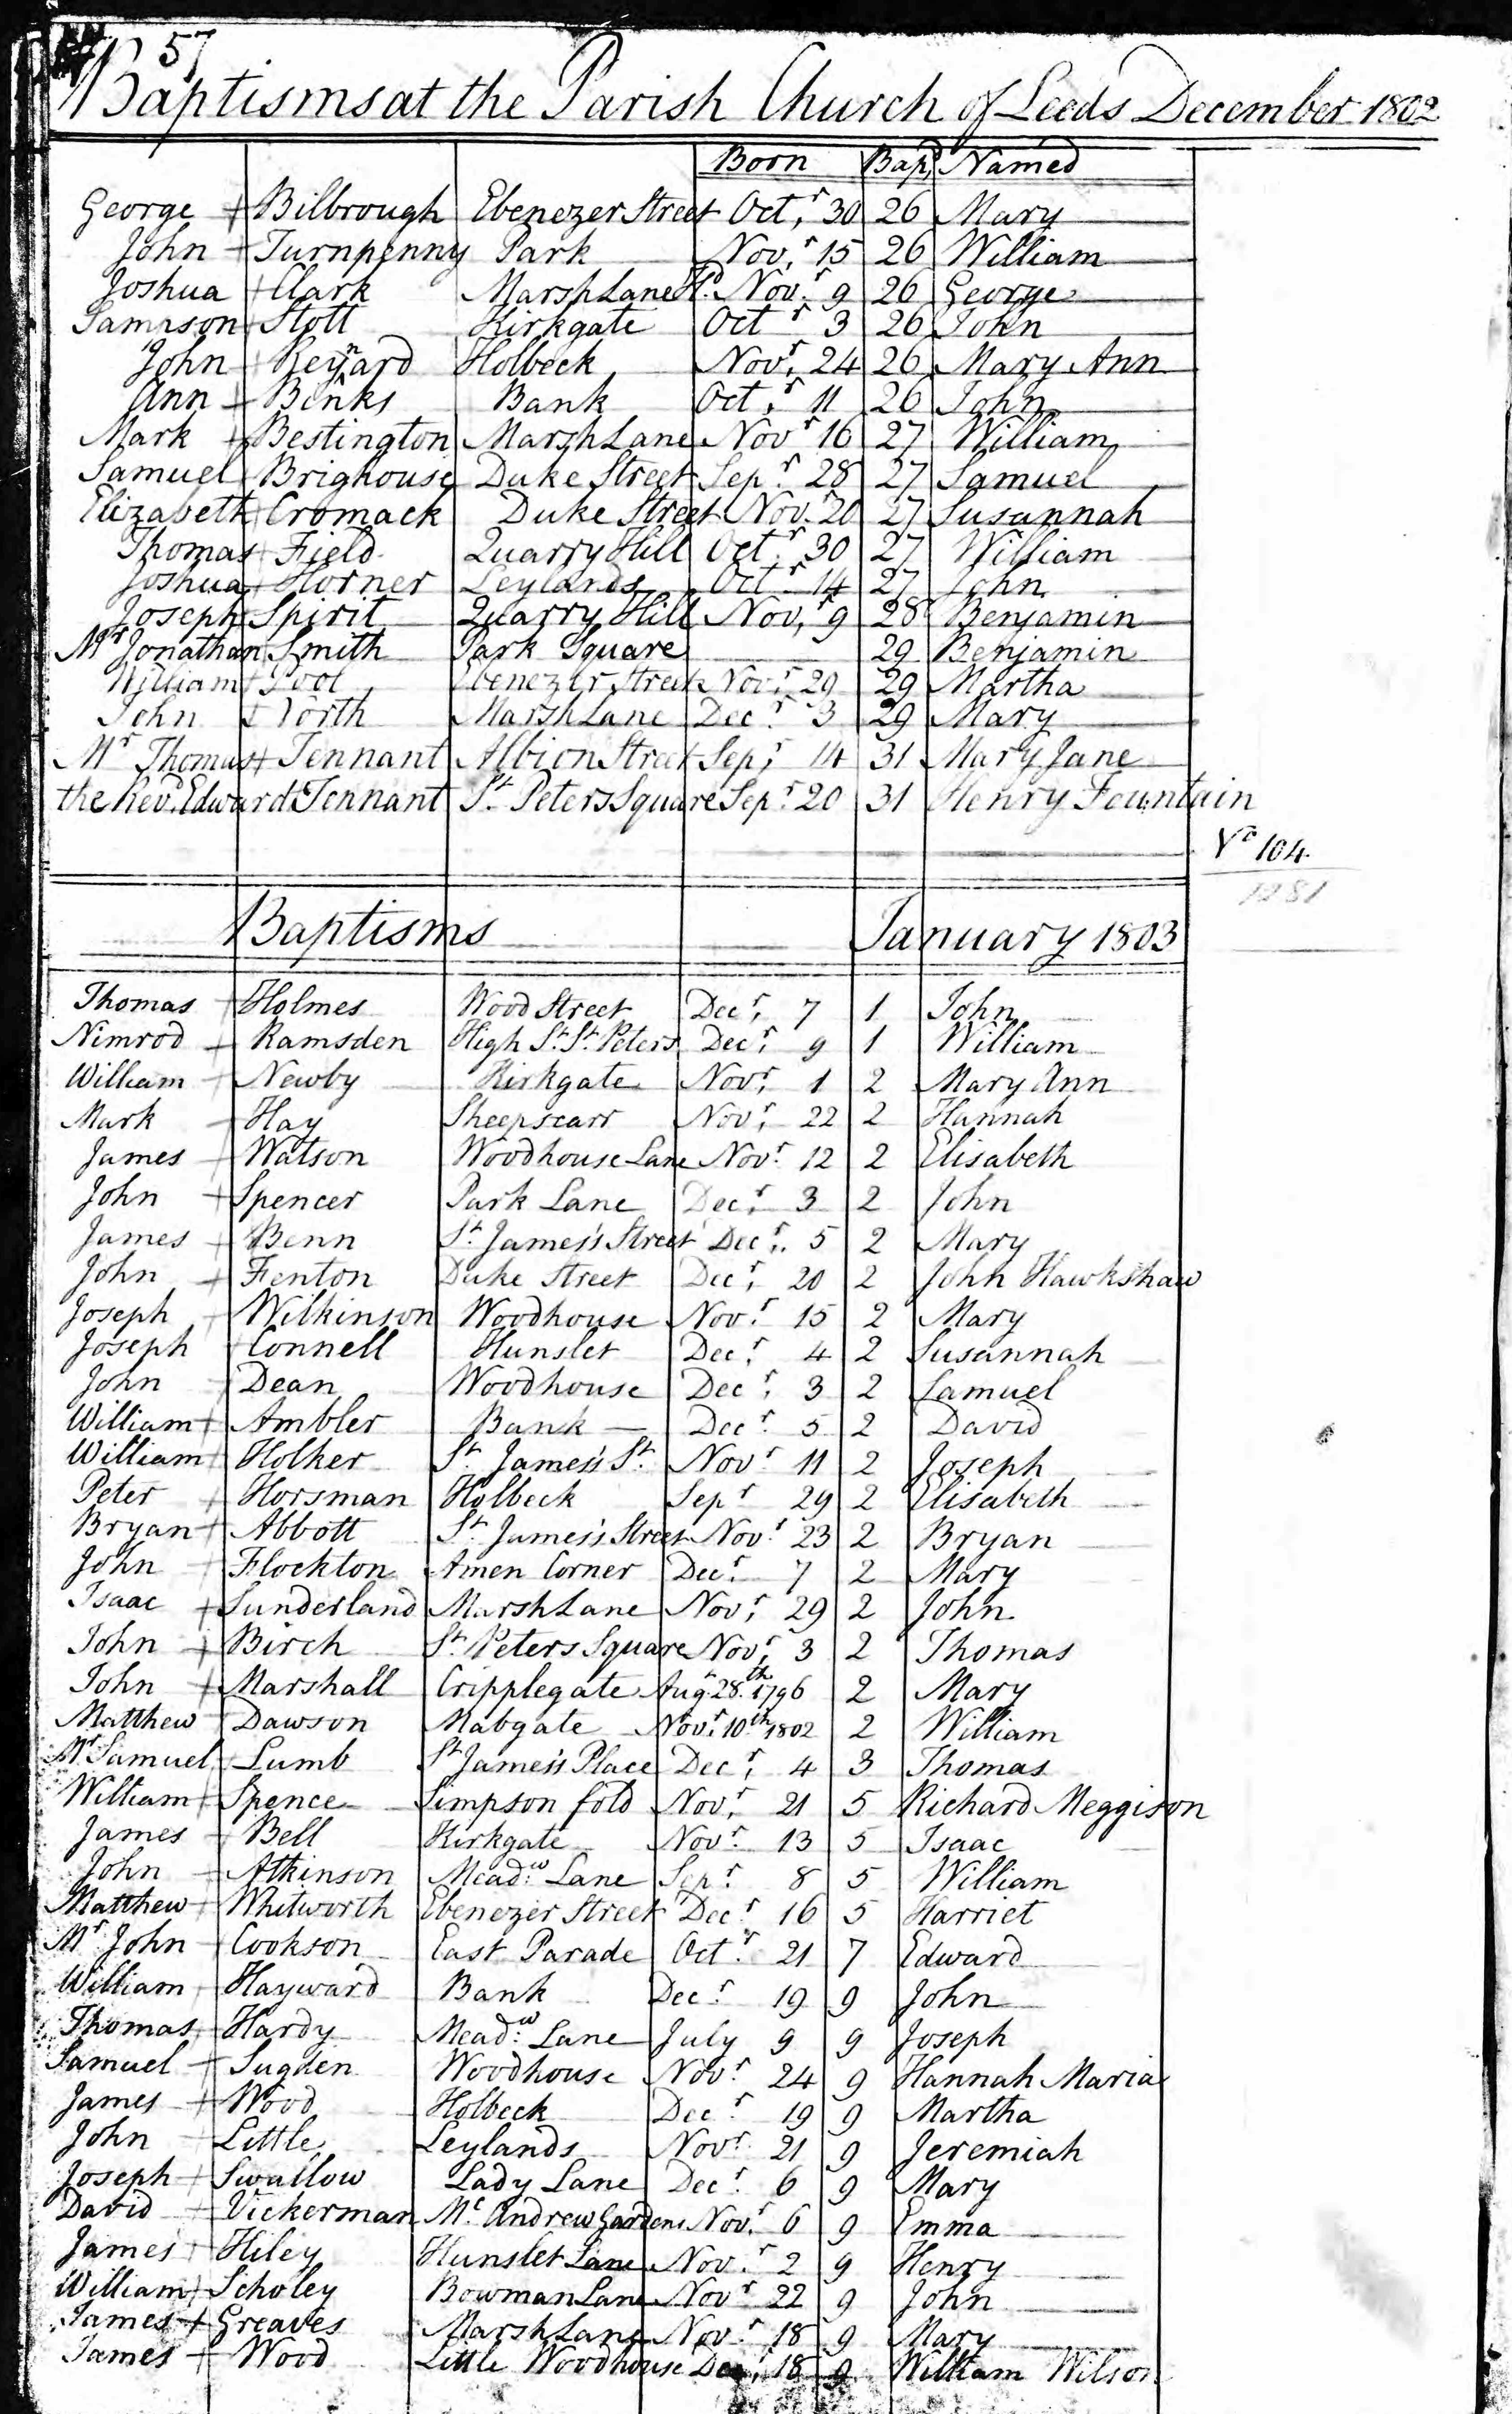 57
Baptisms at the Parish Church of Leeds December 1802
Born Bapd Named
George + Bilbrough Ebenezer Street Octr 30 26 Mary
John + Turnpenny Park Novr 15 26 William
Joshua + Clark Marsh Lane Hd. Novr 9 26 George
Sampson + Stott Kirkgate Octr 3 26 John
John + Reynard Holbeck Novr 24 26 Mary Ann
Ann + Binks Bank Octr 11 26 John
Mark + Bestington Marsh Lane Novr 16 27 William
Samuel + Brighouse Duke Street Sepr 28 27 Samuel
Elizabeth + Cromack Duke Street Novr 20 27 Susannah
Thomas + Field Quarry Hill Octr 30 27 William
Joshua + Horner Leylands Octr 14 27 John
Joseph + Spirit Quarry Hill Novr 9 28 Benjamin
Mr Jonathan Smith Park Square 29 Benjamin
William + Pool Ebenezer Street Novr 29 29 Martha
John + North Marsh Lane Decr 3 29 Mary
Mr Thomas + Tennant Albion Street Sepr 14 31 Mary Jane
the Revd. Edward Tennant St Peters Square Sepr 20 31 Henry Fountain
104
1281
Baptisms January 1803
Thomas + Holmes Wood Street Decr 7 1 John
Nimrod + Ramsden High St. St. Peters Decr 9 1 William
William + Newby Kirkgate Novr 1 2 Mary Ann
Mark + Hay Sheepscarr Novr 22 2 Hannah
James + Watson Woodhouse Lane Novr 12 2 Elisabeth
John + Spencer Park Lane Decr 3 2 John
James + Benn St. James's Street Decr 5 2 Mary
John + Fenton Duke Street Decr 20 2 John Hawkshaw
Joseph + Wilkinson Woodhouse Novr 15 2 Mary
Joseph + Connell Hunslet Decr 4 2 Susannah
John + Dean Woodhouse Decr 3 2 Samuel
William + Ambler Bank Decr 5 2 David
William + Holker St. James's St. Novr 11 2 Joseph
Peter + Horsman Holbeck Sepr 29 2 Elisabeth
Bryan + Abbott St. James's Street Novr 23 2 Bryan
John + Flockton Amen Corner Decr 7 2 Mary
Isaac + Sunderland Marsh Lane Novr 29 2 John
John + Birch St. Peters Square Novr 3 2 Thomas
John + Marshall Cripplegate Aug. 28th 1796 2 Mary
Matthew + Dawson Mabgate Novr 10th 1802 2 William
Mr Samuel + Lumb St James's Place Decr 4 3 Thomas
William + Spence Simpson fold Novr 21 5 Richard Meggison
James + Bell Kirkgate Novr 13 5 Isaac
John + Atkinson Meadw Lane Sepr 8 5 William
Matthew + Whitworth Ebenezer Street Decr 16 5 Harriet
Mr John + Cookson East Parade Octr 21 7 Edward
William + Hayward Bank Decr 19 9 John
Thomas + Hardy Meadw Lane July 9 9 Joseph
Samuel + Sugden Woodhouse Novr 24 9 Hannah Maria
James + Wood Holbeck Decr 19 9 Martha
John + Little Leylands Novr 21 9 Jeremiah
Joseph + Swallow Lady Lane Decr 6 9 Mary
David + Vickerman Mc Andrew Gardens Novr 6 9 Emma
James + Hiley Hunslet Lane Novr 2 9 Henry
William + Scholey Bowman Lane Novr 22 9 John
James + Greaves Marsh Lane Novr 18 9 Mary
James + Wood Little Woodhouse Decr 18 9 William Wilson